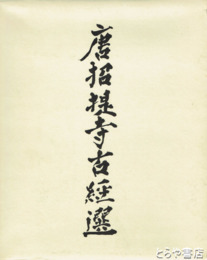 唐招提寺古經選
とらや書店